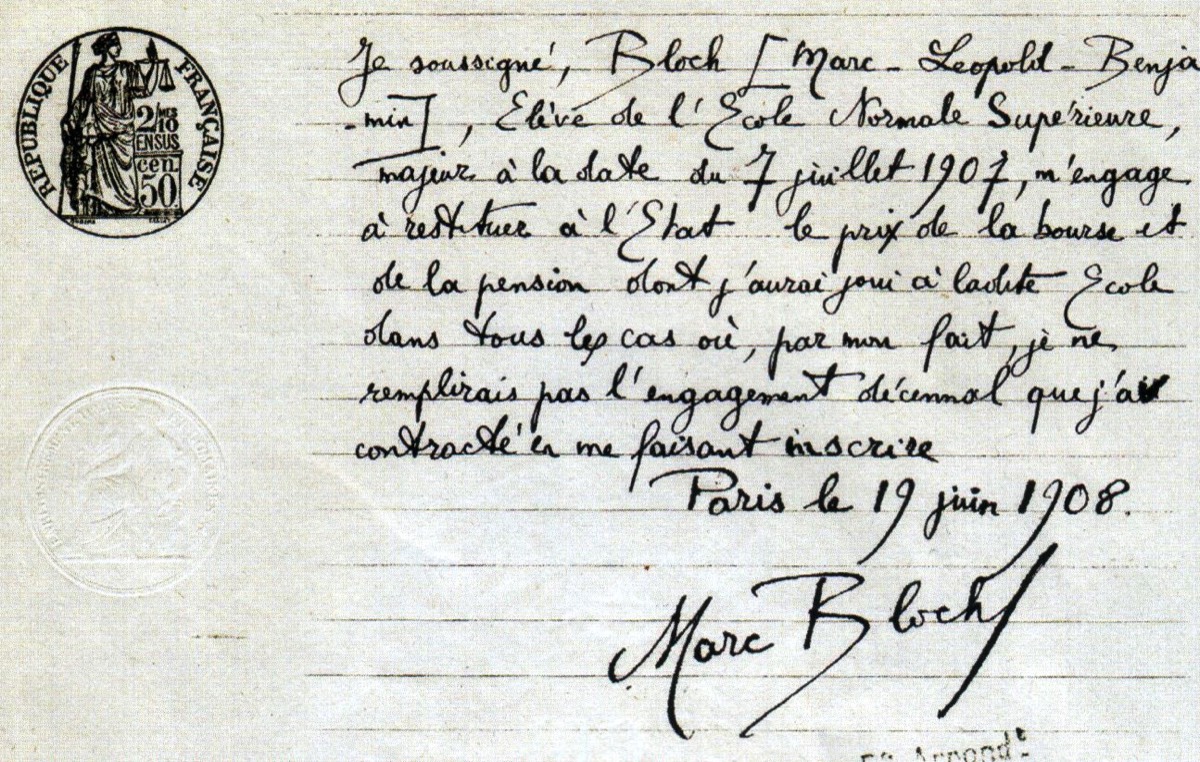 RÉPUBLIQUE FRANÇAISE
2/10
EN SUS
cen.
50
Je soussigné, Bloch [Marc - Leopold - Benja
-min], Elève de l'Ecole Normale Supérieure,
majeur à la date du 7 juillet 1907, m'engage
à restituer à l'Etat le prix de la bourse et
de la pension dont j'aurai joui à ladite Ecole
dans tous les cas où, par mon fait, je ne
remplirais pas l'engagement décennal que j'ai
contracté en me faisant inscrire
Paris le 19 juin 1908.
Marc Bloch
Arrond^t